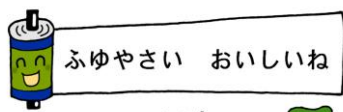 ふゆやさい　おいしいね